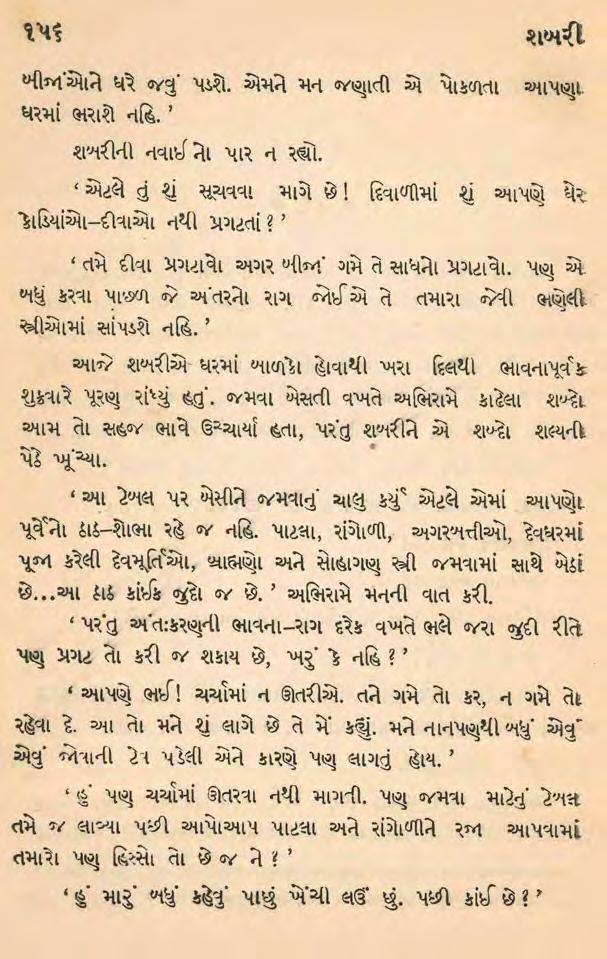 ૧૫૬ શબરી
બીજાંઓને ઘરે જવું પડશે. એમને મન જણાતી એ પોકળતા આપણા
ઘરમાં ભરાશે નહિ. ’
શબરીની નવાઈનો પાર ન રહ્યો.
‘ એટલે તું શું સૂચવવા માગે છે! દિવાળીમાં શું આપણે ઘેર
કોડિયાંઓ–દીવાઓ નથી પ્રગટતાં ? ’
‘ તમે દીવા પ્રગટાવો અગર બીજાં ગમે તે સાધનો પ્રગટાવો. પણ એ
બધું કરવા પાછળ જે અંતરનો રાગ જોઈએ તે તમારા જેવી ભણેલી
સ્ત્રીઓમાં સાંપડશે નહિ. ’
આજે શબરીએ ઘરમાં બાળકો હોવાથી ખરા દિલથી ભાવનાપૂર્વક
શુક્રવારે પૂરણ રાંધ્યું હતું. જમવા બેસતી વખતે અભિરામે કાઢેલા શબ્દો
આમ તો સહજ ભાવે ઉચ્ચાર્યા હતા, પરંતુ શબરીને એ શબ્દો શલ્યની
પેઠે ખૂંચ્યા.
‘ આ ટેબલ પર બેસીને જમવાનું ચાલુ કર્યું એટલે એમાં આપણો
પૂર્વેનો ઠાઠ–શોભા રહે જ નહિ. પાટલા, રાંગોળી, અગરબત્તીઓ, દેવઘરમાં
પૂજા કરેલી દેવમૂર્તિઓ, બ્રાહ્મણો અને સોહાગણ સ્ત્રી જમવામાં સાથે બેઠાં
છે...આ ઠાઠ કાંઈક જુદો જ છે. ’ અભિરામે મનની વાત કરી.
‘ પરંતુ અંતઃકરણની ભાવના–રાગ દરેક વખતે ભલે જરા જુદી રીતે
પણ પ્રગટ તો કરી જ શકાય છે, ખરું કે નહિ ? ’
‘ આપણે ભઈ! ચર્ચામાં ન ઊતરીએ. તને ગમે તો કર, ન ગમે તો
રહેવા દે. આ તો મને શું લાગે છે તે મેં કહ્યું. મને નાનપણથી બધું એવું
એવું જોવાની ટેવ પડેલી એને કારણે પણ લાગતું હોય. ’
‘ હું પણ ચર્ચામાં ઊતરવા નથી માગતી. પણ જમવા માટેનું ટેબલ
તમે જ લાવ્યા પછી આપોઆપ પાટલા અને રાંગોળીને રજા આપવામાં
તમારો પણ હિસ્સો તો છે જ ને ? ’
‘ હું મારું બધું કહેવું પાછું ખેંચી લઉં છું. પછી કાંઈ છે ? ’